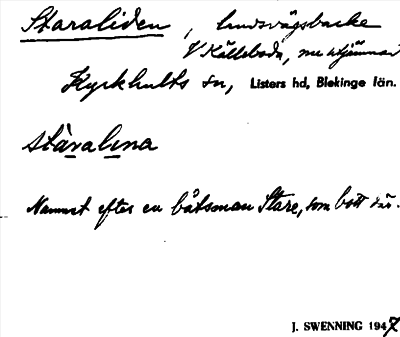 Staraliden, landsvägsbacke
V Källeboda, nu utjämnad
Kyrkhults sn, Listers hd, Blekinge län.
stàralɩna
Namnet efter en båtsman Stare, som bott där.
J. SWENNING 1947